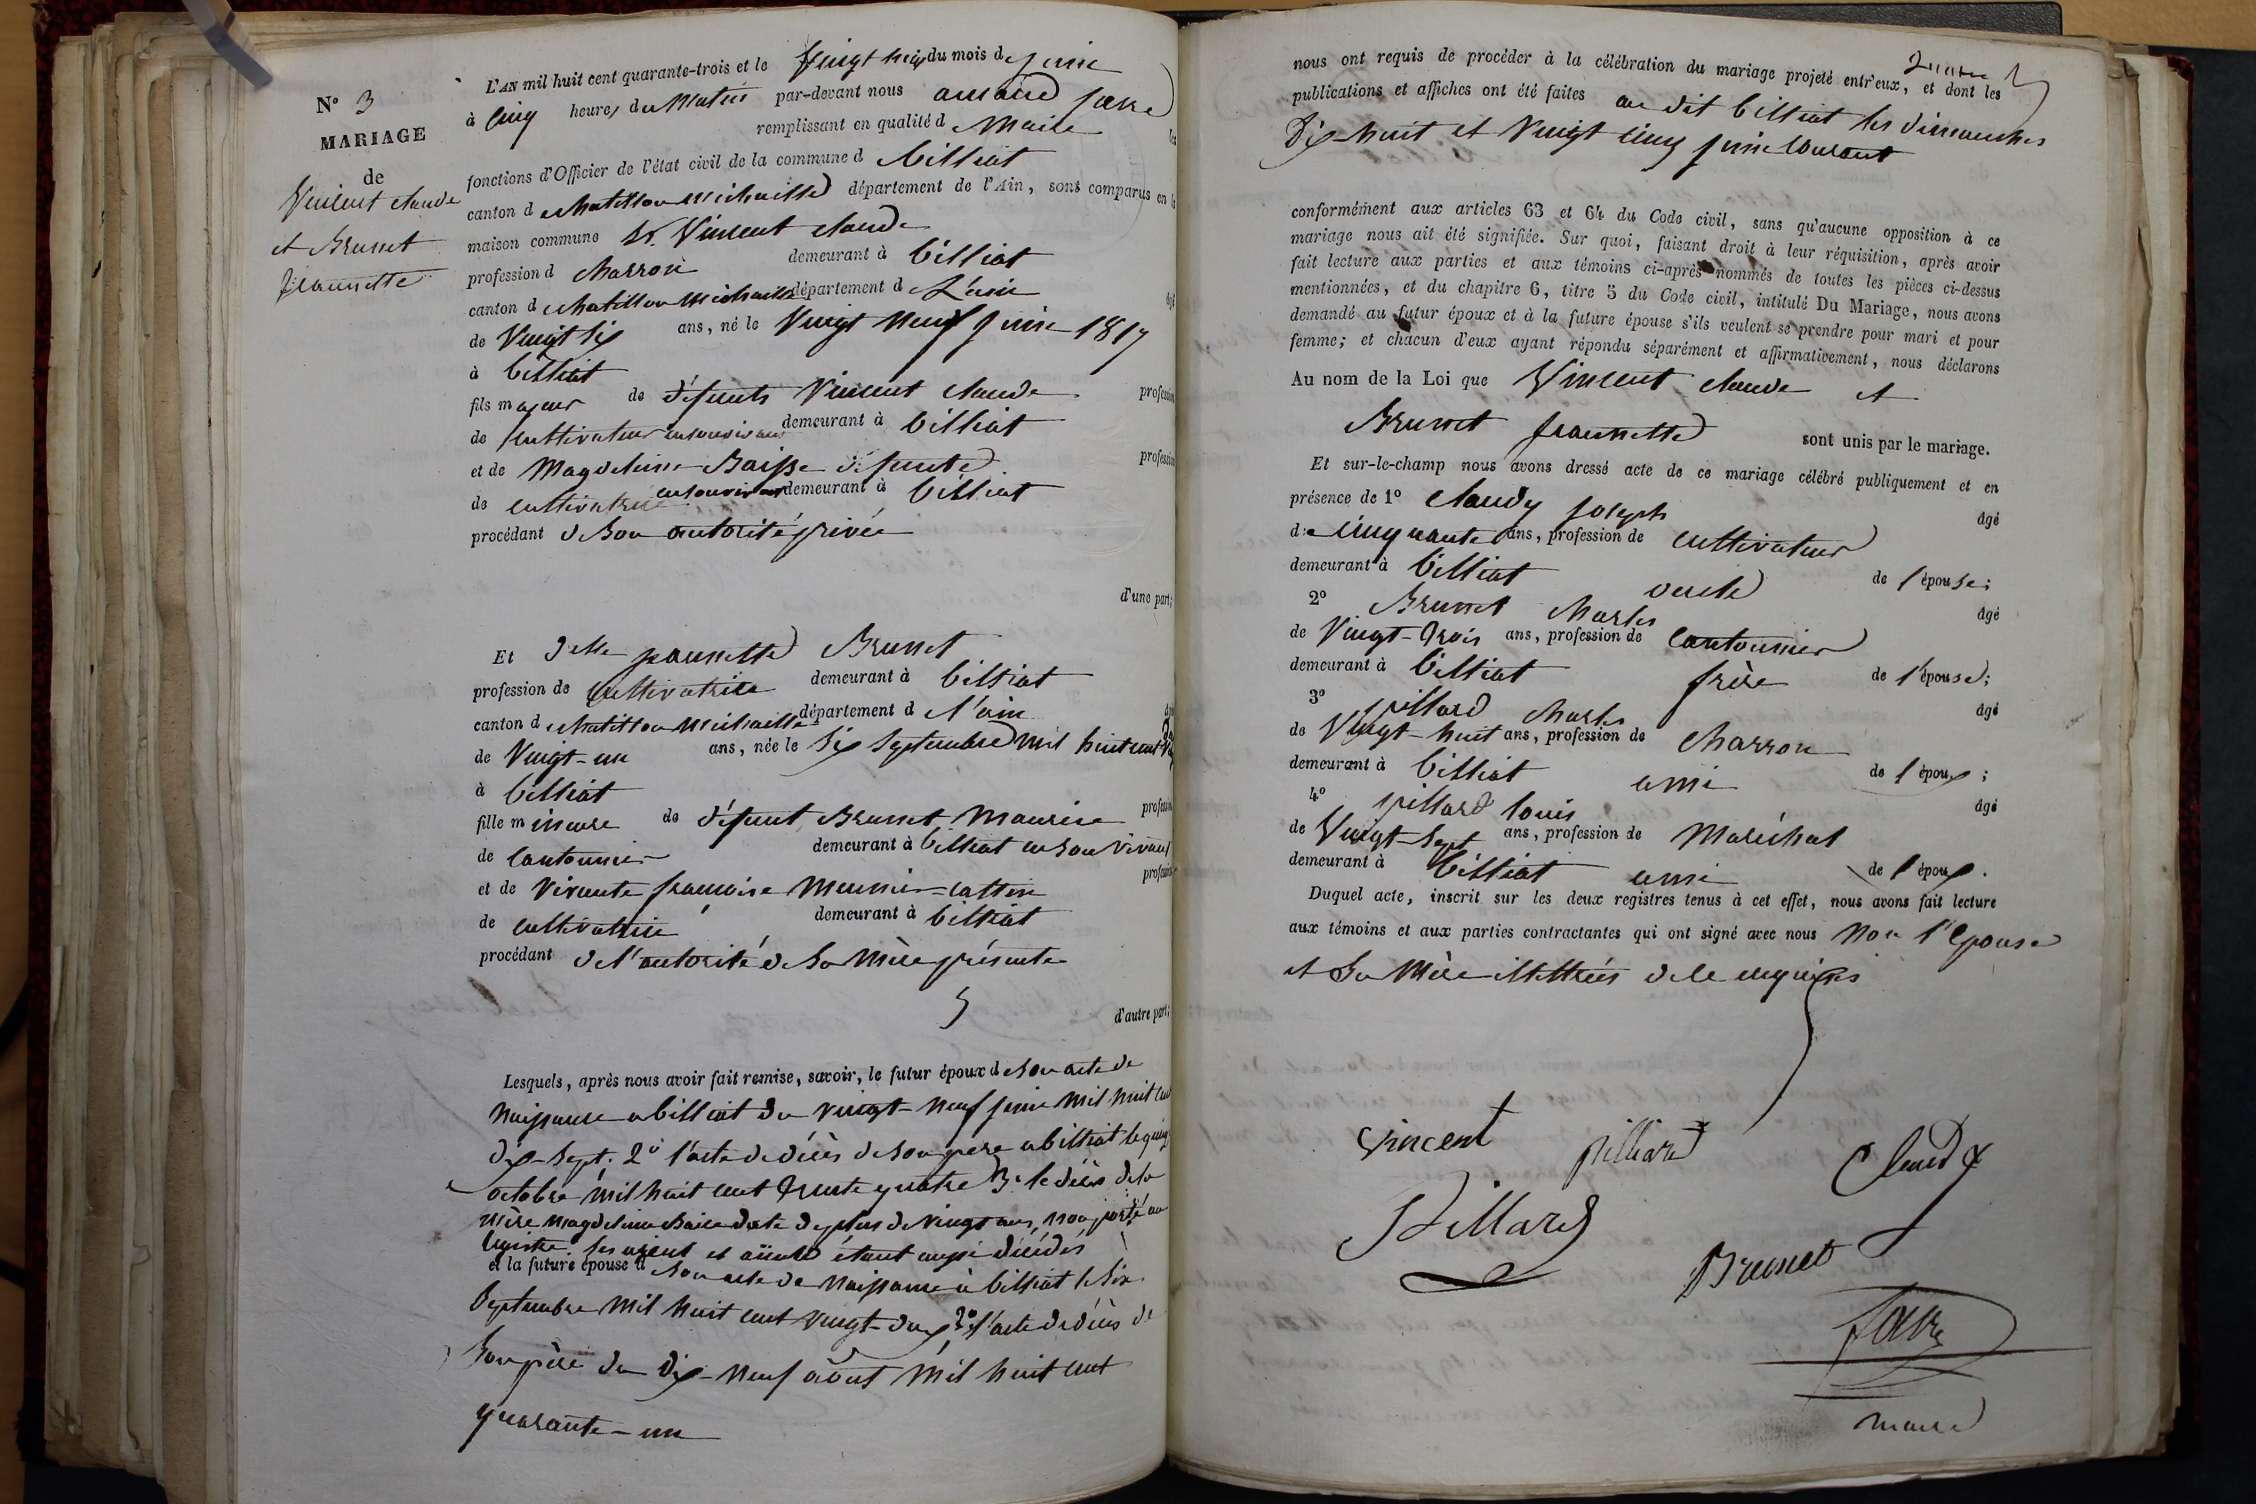 N° 3
MARIAGE
de
Vincent claude
et Brunet
Jeannette
L'AN mil huit cent quarante-trois et le vingt huit du mois de juin
à cinq heures du matin par-devant nous
remplissant en qualité de Maire les
fonctions d'Officier de l'état civil de la commune de billiat
canton de chatillon michaille département de l'Ain, sont comparus en la
maison commune Sr. Vincent claude
profession de charron demeurant à billiat
canton de chatillon michaille département de L'ain âgé
de vingt six ans, né le vingt neuf juin 1817
à billiat
fils majeur de défunts Vincent claude profession
de cultivateur en son vivant demeurant à billiat
et de Magdeleine Baisse défunte profession
de cultivatrice en son vivant demeurant à billiat
procédant de son autorité privée
d'une part;
Et delle jeannette Brunet
profession de cultivatrice demeurant à billiat
canton de chatillon michaille département de l'ain âgée
de vingt-un ans, née le six septembre mil huit cent vingt
à billiat
fille mineure de défunt Brunet Maurice profession
de cantonnier demeurant à billiat en son vivant
et de vivante françoise Meunier-cattin profession
de cultivatrice demeurant à billiat
procédant de l'autorité de sa mère présente
d'autre part;
Lesquels, après nous avoir fait remise, savoir, le futur époux de son acte de
naissance a billiat du vingt-neuf juin mil huit cent
dix-sept. 2° l'acte de décès de son père a billiat le quinze
octobre mil huit cent trente quatre 3° le décès de la
mère magdeleine Baisse date de plus de vingt ans, non porté au
registre. ses aïeul et aïeule étant aussi décédés
et la future épouse d son acte de naissance à billiat le six
septembre mil huit cent vingt-deux, 2° l'acte de décès de
son père du dix-neuf août mil huit cent
quarante-un
nous ont requis de procéder à la célébration du mariage projeté entr'eux, et dont les
publications et affiches ont été faites au dit billiat les dimanches
dix-huit et vingt cinq juin courant
conformément aux articles 63 et 64 du Code civil, sans qu'aucune opposition à ce
mariage nous ait été signifiée. Sur quoi, faisant droit à leur réquisition, après avoir
fait lecture aux parties et aux témoins ci-après nommés de toutes les pièces ci-dessus
mentionnées, et du chapitre 6, titre 5 du Code civil, intitulé Du Mariage, nous avons
demandé au futur époux et à la future épouse s'ils veulent se prendre pour mari et pour
femme; et chacun d'eux ayant répondu séparément et affirmativement, nous déclarons
Au nom de la Loi que Vincent claude et
Brunet jeannette sont unis par le mariage.
Et sur-le-champ nous avons dressé acte de ce mariage célébré publiquement et en
présence de 1° claudy joseph âgé
de cinquante ans, profession de cultivateur
demeurant à billiat oncle de l'épouse;
2° Brunet charles âgé
de vingt-trois ans, profession de cantonnier
demeurant à billiat frère de l'épouse;
3° pillard charles âgé
de vingt-huit ans, profession de charron
demeurant à billiat ami de l'époux;
4° pillard louis âgé
de vingt-sept ans, profession de Maréchal
demeurant à billiat ami de l'époux.
Duquel acte, inscrit sur les deux registres tenus à cet effet, nous avons fait lecture
aux témoins et aux parties contractantes qui ont signé avec nous non l'épouse
et sa mère illettrées de ce enquises
Vincent pilliard Claudy
Pillard
Brunet
favre
maire